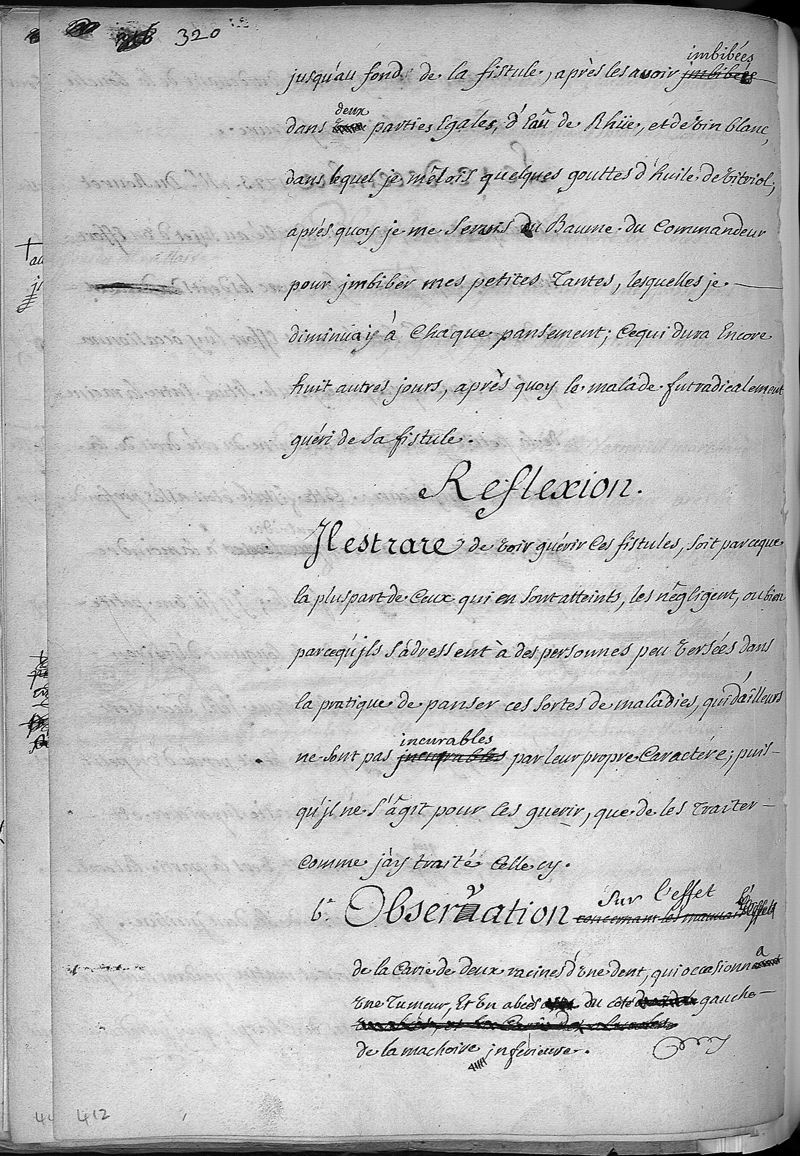 320
jusqu'au fond de la fistule, après les avoir imbibées
dans deux parties Egales, d'Eau de Rhüe, et de vin blanc,
dans lequel je mêlois quelques gouttes d'huile de vitriol;
après quoy je me servis du Baume du Commandeur
pour jmbiber mes petites Tantes, lesquelles je
diminuay à Chaque pansement; Ce qui dura Encore
huit autres jours, après quoy le malade fut radicalement
guéri de sa fistule.
Reflexion.
Il est rare de voir guérir Ces fistules, soit parceque
la pluspart de Ceux qui en sont atteints, les nègligent, ou bien
parcequ'jls s'adressent à des personnes peu versées dans
la pratique de panser ces sortes de maladies, qui d'ailleurs
ne sont pas incurables par leur propre Caractère; puis-
qu'jl ne s'agit pour les guerir, que de les Traiter
comme j'ay traité Celle cy.
6e Observation sur l'effet
concernant les mauvais effets
de la Carie de deux racines d'une dent, qui occasionna
une Tumeur, Et un abcès du côté gauche
de la machoire inférieure.
412